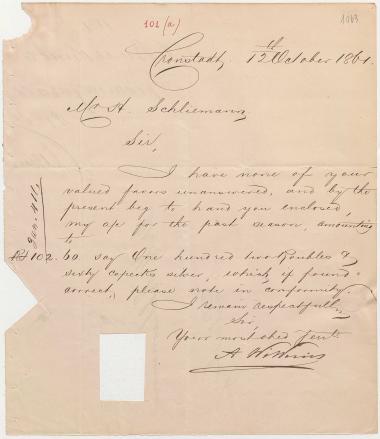 101 (a)
1063
Cronstadt, 12th October 1861.
Mr H. Schliemann,
Sir,
I have none of your
valued favors unanswered, and by the
present beg to hand you enclosed,
my a/c for the past season, amounting
to
102.60 say One hundred two Roubles &
sixty copecks silver, which, if found
correct, please note in conformity.
I remain respectfully
Sir,
Your most obed Servt
A